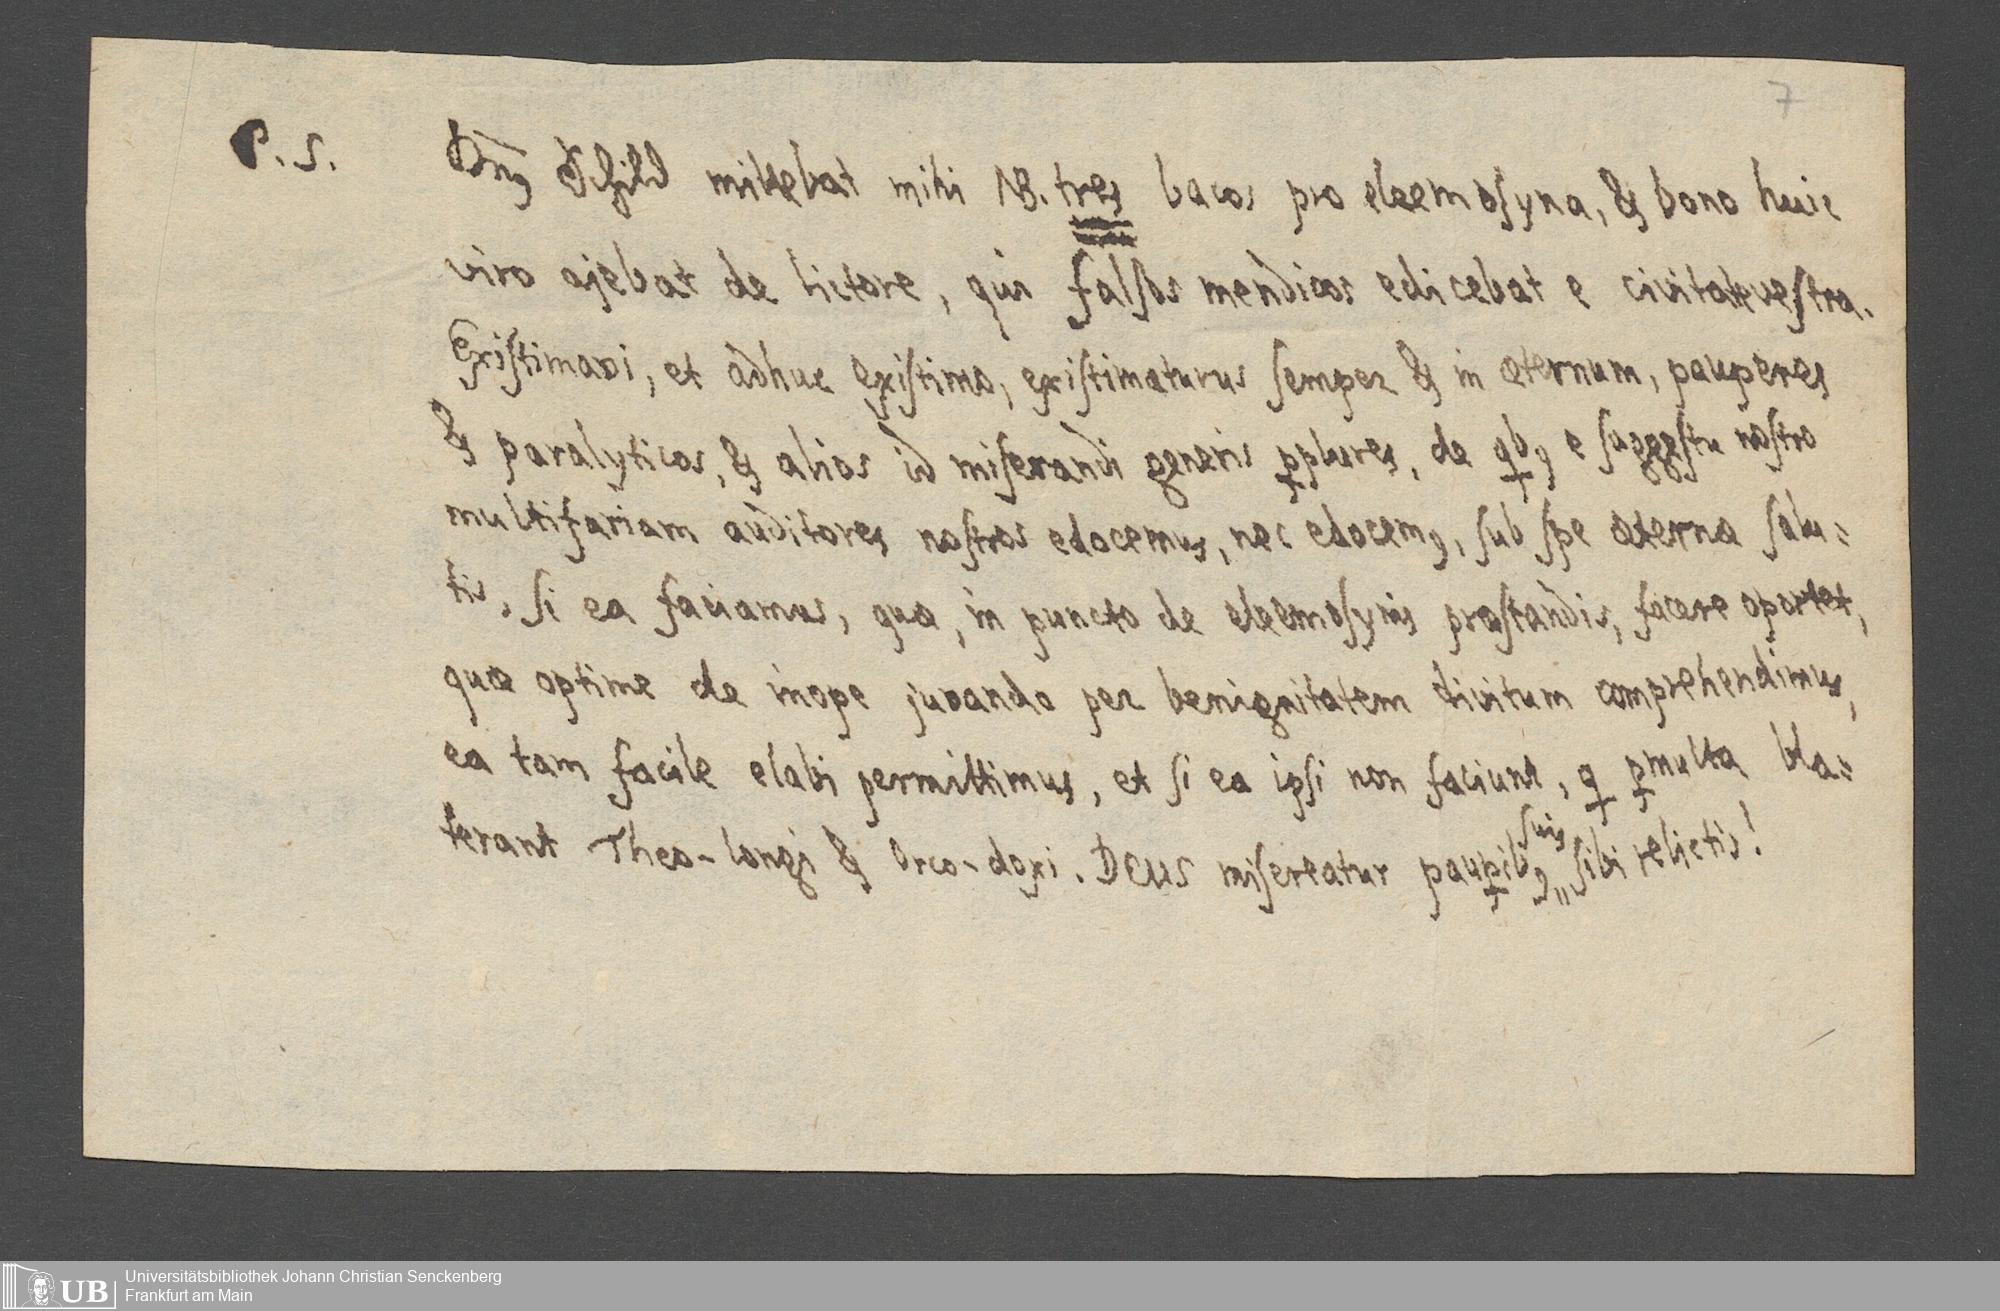 7
P. S. Dn9 Schild mittebat mihi NB. tres bacos pro eleemosyna, & bono huic
viro ajebat de lictore, qui falsos mendicos edicebat e civitate vestra.
Existimavi, et adhuc existimo, existimaturus semper & in æternum, pauperes
& paralyticos, & alios id miserandi generis pplures, de qb9 e suggestu nostro
multifariam auditores nostros edocemus, nec edocem9, sub spe æternæ salu=
tis, si ea faciamus, quæ, in puncto de eleemosynis præstandis, facere oportet,
quæ optime de inope juvando per benignitatem divitum comprehendimus,
ea tam facile elabi permittimus, et si ea ipsi non faciunt, q pmulta bla=
terant Theo-longi & Orco-doxi. Deus misereatur paupib9 suis sibi relictis!
UB Universitätsbibliothek Johann Christian Senckenberg
Frankfurt am Main